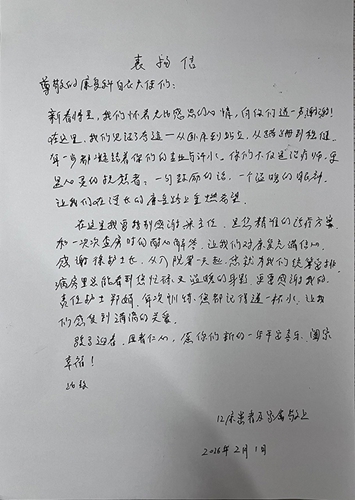 表扬信
尊敬的康复科白衣天使们:
新春将至,我们怀着无比感恩的心情,向你们道一声谢谢!
在这里,我们见证了奇迹——从卧床到站立,从蹒跚到稳健,
每一步都凝结着你们的专业与汗水。你们不仅是治疗师,更
是心灵的抚慰者:一句鼓励的话,一个温暖的眼神,
让我们在漫长的康复路上重燃希望。
在这里我要特别感谢 主任,是您精准的治疗方案
和一次次查房时的耐心解答,让我们对康复充满信心。
感谢 护士长,从入院第一天起,您就为我们统筹安排
病房里总能看到您忙碌又温暖的身影,更要感谢我的
责任护士 ,每次训练,您都记得递一杯水,让我
们感受到满满的关爱。
医者仁心,愿你们新的一年平安喜乐,阖家
幸福!
此致
12床患者及家属敬上
2026年2月1日